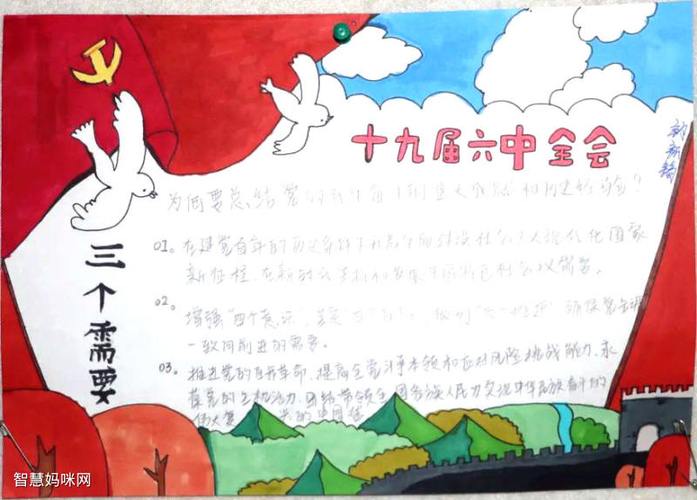 十九届六中全会
三个需要
为何要总结党的百年奋斗重大成就和历史经验？
01。在建党百年的历史条件下开启全面建设社会主义现代化国家
新征程、在新时代坚持和发展中国特色社会主义需要。
02。增强"四个意识"、 "两个维护" 确保全党
一致向前进的需要。
03。推进党的自我革命、提高全党斗争本领和应对风险挑战能力、永
葆党的生机活力、团结带领全国各族人民为实现中华民族 的
伟大复 的中国
智慧妈咪网